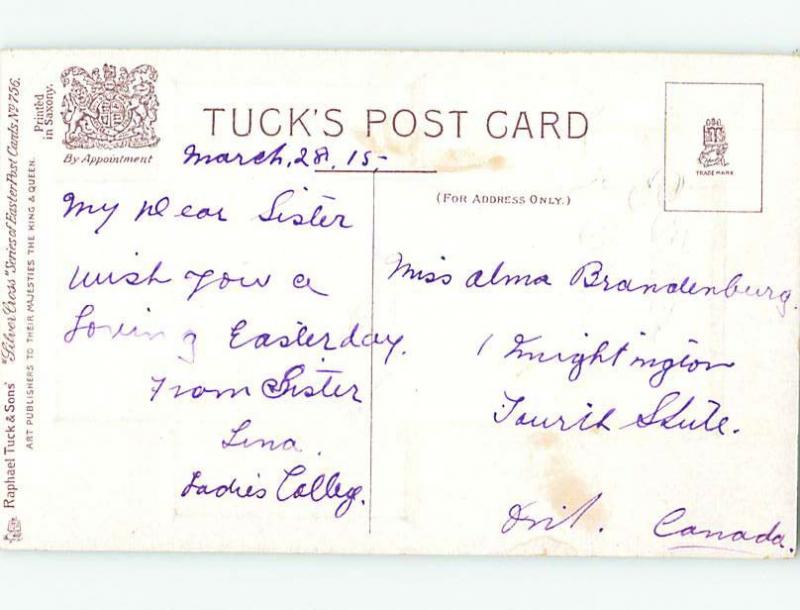 Raphael Tuck & Sons "Silver Cross" Series of Easter Post Cards Nº 756.
ART PUBLISHERS TO THEIR MAJESTIES THE KING & QUEEN.
Printed
in Saxony.
By Appointment
TUCK'S POST CARD
(FOR ADDRESS ONLY.)
TRADE MARK
March, 28, 15,-
My Dear Sister
Wish you a
Loving Easterday.
From Sister
Lena.
Ladies College.
Miss Alma Brandenburg.
Canada.